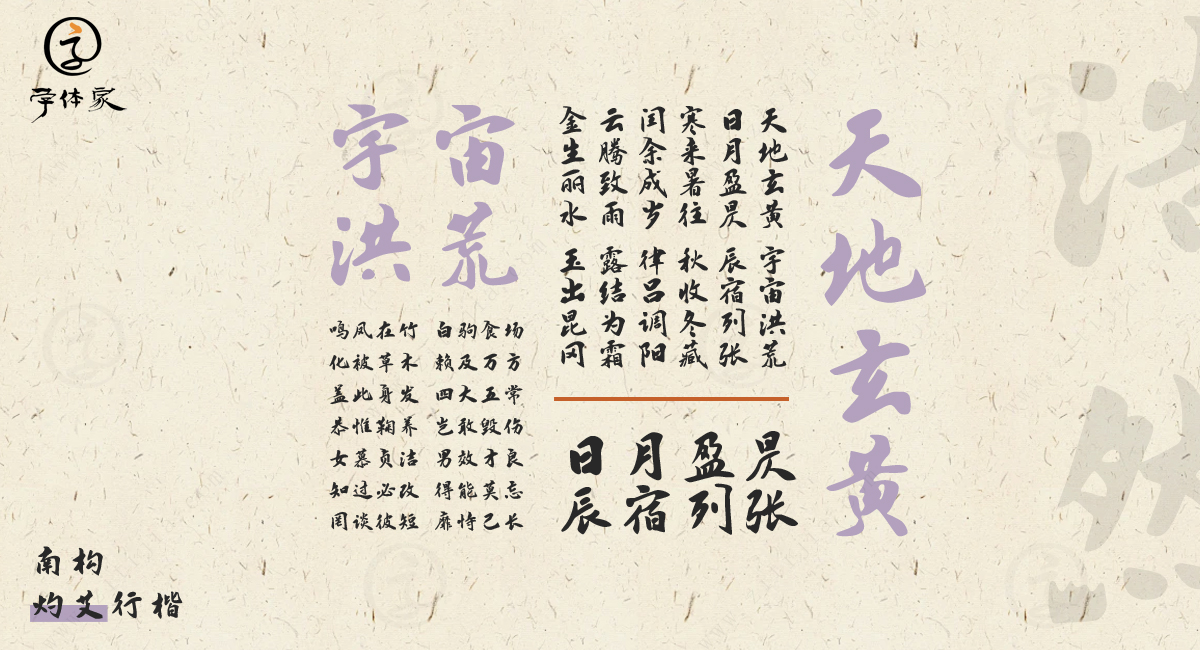 字
字体家
天地玄黄
天地玄黄 宇宙洪荒
日月盈昃 辰宿列张
寒来暑往 秋收冬藏
闰余成岁 律吕调阳
云腾致雨 露结为霜
金生丽水 玉出昆冈
宇宙
洪荒
鸣凤在竹 白驹食场
化被草木 赖及万方
盖此身发 四大五常
恭惟鞠养 岂敢毁伤
女慕贞洁 男效才良
知过必改 得能莫忘
罔谈彼短 靡恃己长
日月盈昃
辰宿列张
南构
灼艾行楷